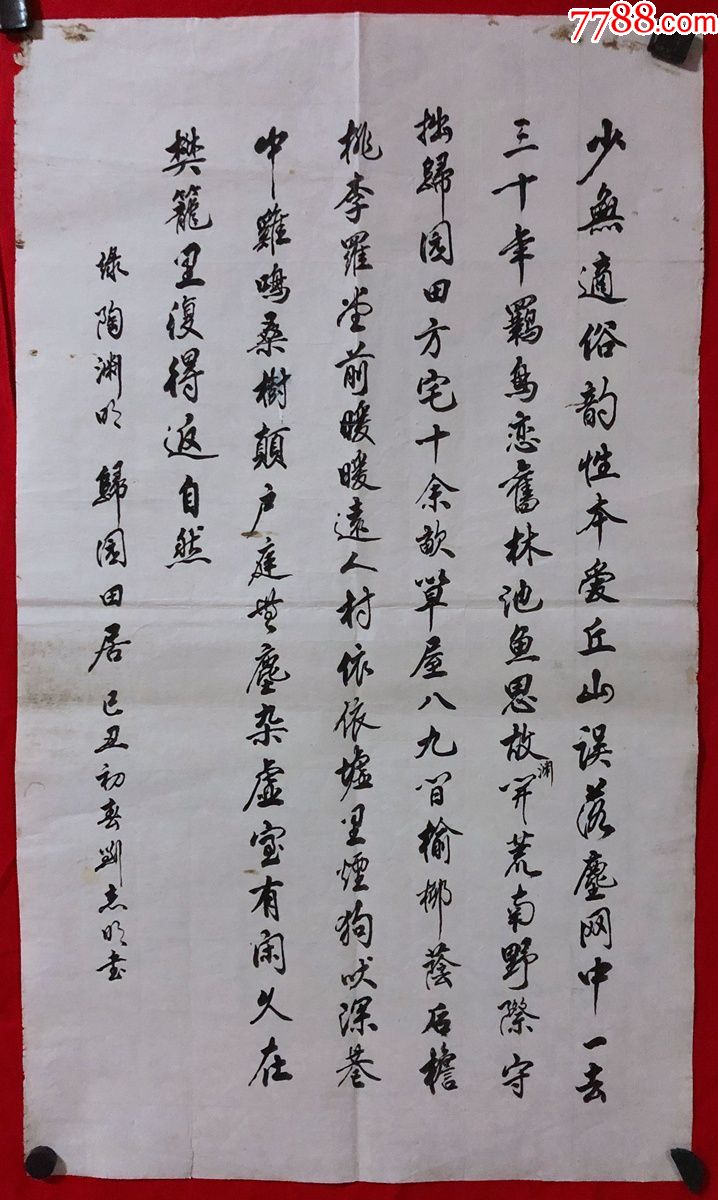 7788.com
少無適俗韵性本爱丘山误落塵网中一去
三十年羁鸟恋舊林池鱼思故渊开荒南野際守
拙歸园田方宅十余畝草屋八九间榆柳蔭后檐
桃李羅堂前暧暧遠人村依依墟里煙狗吠深巷
中雞鸣桑樹顛户庭無塵杂虚室有闲久在
樊籠里復得返自然
録陶渊明歸園田居己丑初春劉志明书